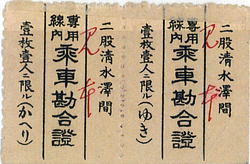 二股清水澤間
専用線内
乗車勘合證
壹枚壹人ニ限ル(ゆき)
見本
二股清水澤間
専用線内
乗車勘合證
壹枚壹人ニ限ル(かへり)
見本